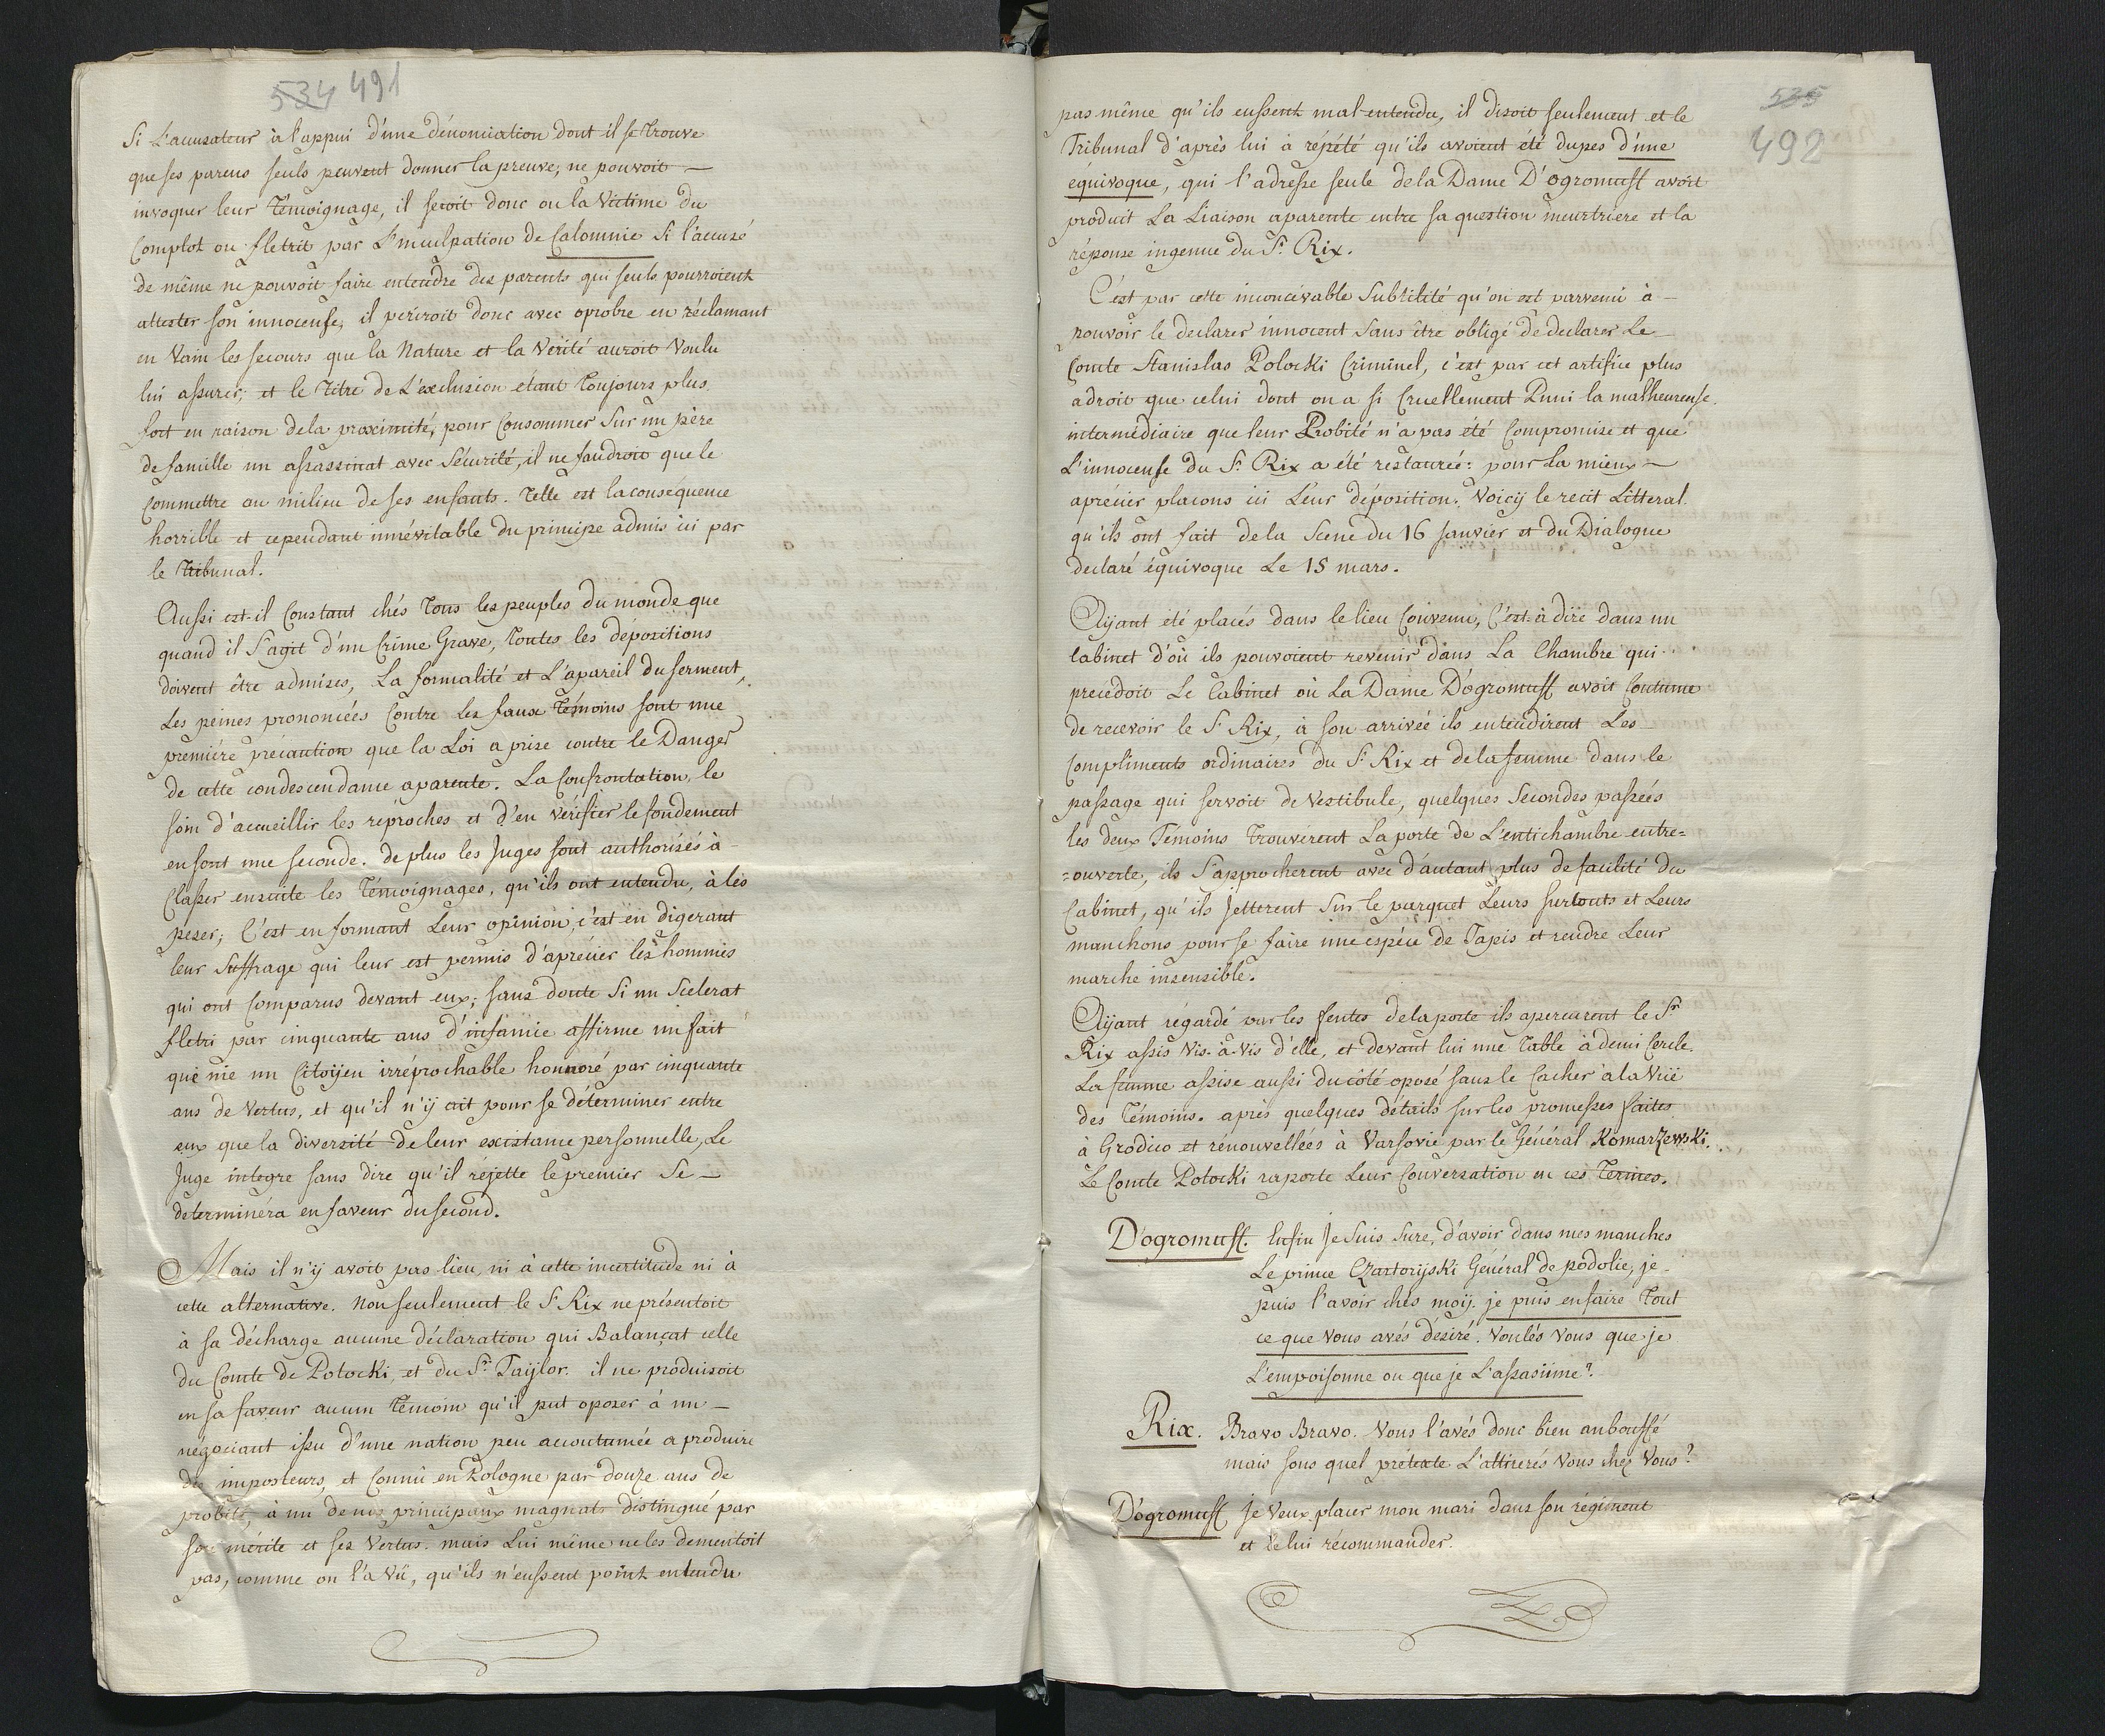 534 491
Si L'accusateur à l'appui d'une dénonciation dont il se trouve
que ses parens seuls peuvent donner la preuve, ne pouvoit —
invoquer leur Témoignage, il seroit donc ou la Victime du
Complot ou fletrit par L'inculpation de Calomnie Si l'accusé
de même ne pouvoit faire entendre des parents qui seuls pourroient
attester son innocense, il périroit donc avec oprobre en réclamant
en Vain les secours que la Nature et la Vérité auroit Voulu
lui assurer; et le Titre de L'exclusion étant Toujours plus
fort en raison dela proximité, pour Consommer Sur un père
de famille un assassinat avec Sécurité, il ne faudroit que le
Commettre au milieu de ses enfants. Telle est la conséquence
horrible et cependant innévitable du principe admis ici par
le Tribunal.
Aussi est-il Constant chés Tous les peuples du monde que
quand il S'agit d'un Crime Grave, Toutes les dépositions
doivent être admises, La formalité et L'apareil du serment,
Les peines prononcées Contre les faux Témoins sont une
première précaution que la Loi a prise contre le Danger
de cette condescendance aparente. La Confrontation, le
soin d'accueillir les reproches et d'en vérifier le fondement
en font une seconde. de plus les Juges sont authorisés à -
Classer ensuite les Témoignages, qu'ils ont entendu, à les
peser; C'est en formant Leur opinion, c'est en digerant
leur Suffrage qui leur est permis d'aprécier les hommes
qui ont Comparus devant eux; sans doute Si un Scelerat
fletri par cinquante ans d'infamie affirme un fait
que nie un Citoÿen irréprochable honnoré par cinquante
ans de Vertus, et qu'il n'ÿ ait pour se déterminer entre
eux que la diversité de leur existance personnelle, Le
Juge integre sans dire qu'il réjette le premier Se —
determinéra en faveur du second.
Mais il n'ÿ avoit pas lieu, ni à cette incertitude ni à
cette alternative. Non seulement le Sr. Rix ne présentoit
à sa décharge aucune déclaration qui Balançat celle
du Comte de Potocki, et du Sr. Taÿlor. il ne produisoit
en sa faveur aucun Témoin qu'il put oposer à un —
négociant issu d'une nation peu accoutumée a produire
des imposteurs, et Connû en Pologne par douze ans de
probité, à un de nos principaux magnats distingué par
son mérite et ses Vertus. mais Lui même ne les dementoit
pas, comme on l'a Vû, qu'ils n'eussent point entendu
535
492
pas même qu'ils eussent mal-entendu, il disoit seulement et le
Tribunal d'après lui à répété qu'ils avoient été dupes d'une
équivoque, qui l'adresse seule dela Dame D'ogromuff avoit
produit La Liaison aparente entre sa question meurtriere et la
réponse ingenue du Sr. Rix.
C'est par cette inconcévable Subtilité qu'on est parvenu à —
pouvoir le declarer innocent sans être obligé de declarer Le
Comte Stanislas Potocki Criminel, c'est par cet artifice plus
adroit que celui dont on a si Cruellement Puni la malheureuse
intermédiaire que leur Probité n'a pas été Compromise et que
L'innocense du Sr. Rix a été restaurée: pour La mieux —
aprécier placons ici Leur déposition. Voicÿ le recit Litteral
qu'ils ont fait dela Scene du 16 Janvier et du Dialogue
declaré équivoque Le 15 mars.
Aÿant été placés dans le lieu Convenu, C'est-à dire dans un
Cabinet d'où ils pouvoient revenir dans La Chambre qui
precedoit Le Cabinet où La Dame D'ogromuff avoit Coutume
de recevoir le Sr. Rix, à son arrivée ils entendirent Les
Compliments ordinaires du Sr. Rix et dela femme dans le
passage qui servoit de Vestibule, quelques Secondes passées
les deux Témoins Trouvérent La porte de L'entichambre entre=
=ouverte, ils S'approcherent avec d'autant plus de facilité du
Cabinet, qu'ils Jetterent Sur le parquet Leurs surtouts et Leurs
manchons pour se faire une espéce de Tapis et rendre Leur
marche insensible.
Aÿant régardé par les fentes dela porte ils apercurent le Sr
Rix assis Vis-à-Vis d'elle, et devant lui une Table à demi Cercle.
La femme assise aussi du côté oposé sans le Cacher à la Vûe
des Témoins. après quelques détails sur les promesses faites
à Grodno et rénouvellées à Varsovie par le Général Komarzewski.
Le Comte Potocki raporte Leur Conversation en ces Termes.
D'ogromuff. Enfin Je Suis Sure, d'avoir dans mes manches
Le prince Czartorijski Général de podolie, je
puis l'avoir chés moÿ. je puis en faire Tout
ce que vous avés désiré. Voulés Vous que je
L'empoisonne ou que je L'assasiinne?
Rix. Bravo Bravo. Vous l'avés donc bien anboussé
mais sous quel prétexte L'attirerés Vous chez Vous?
D'ogromuff Je Veux placer mon mari dans son régiment
et le lui récommander.